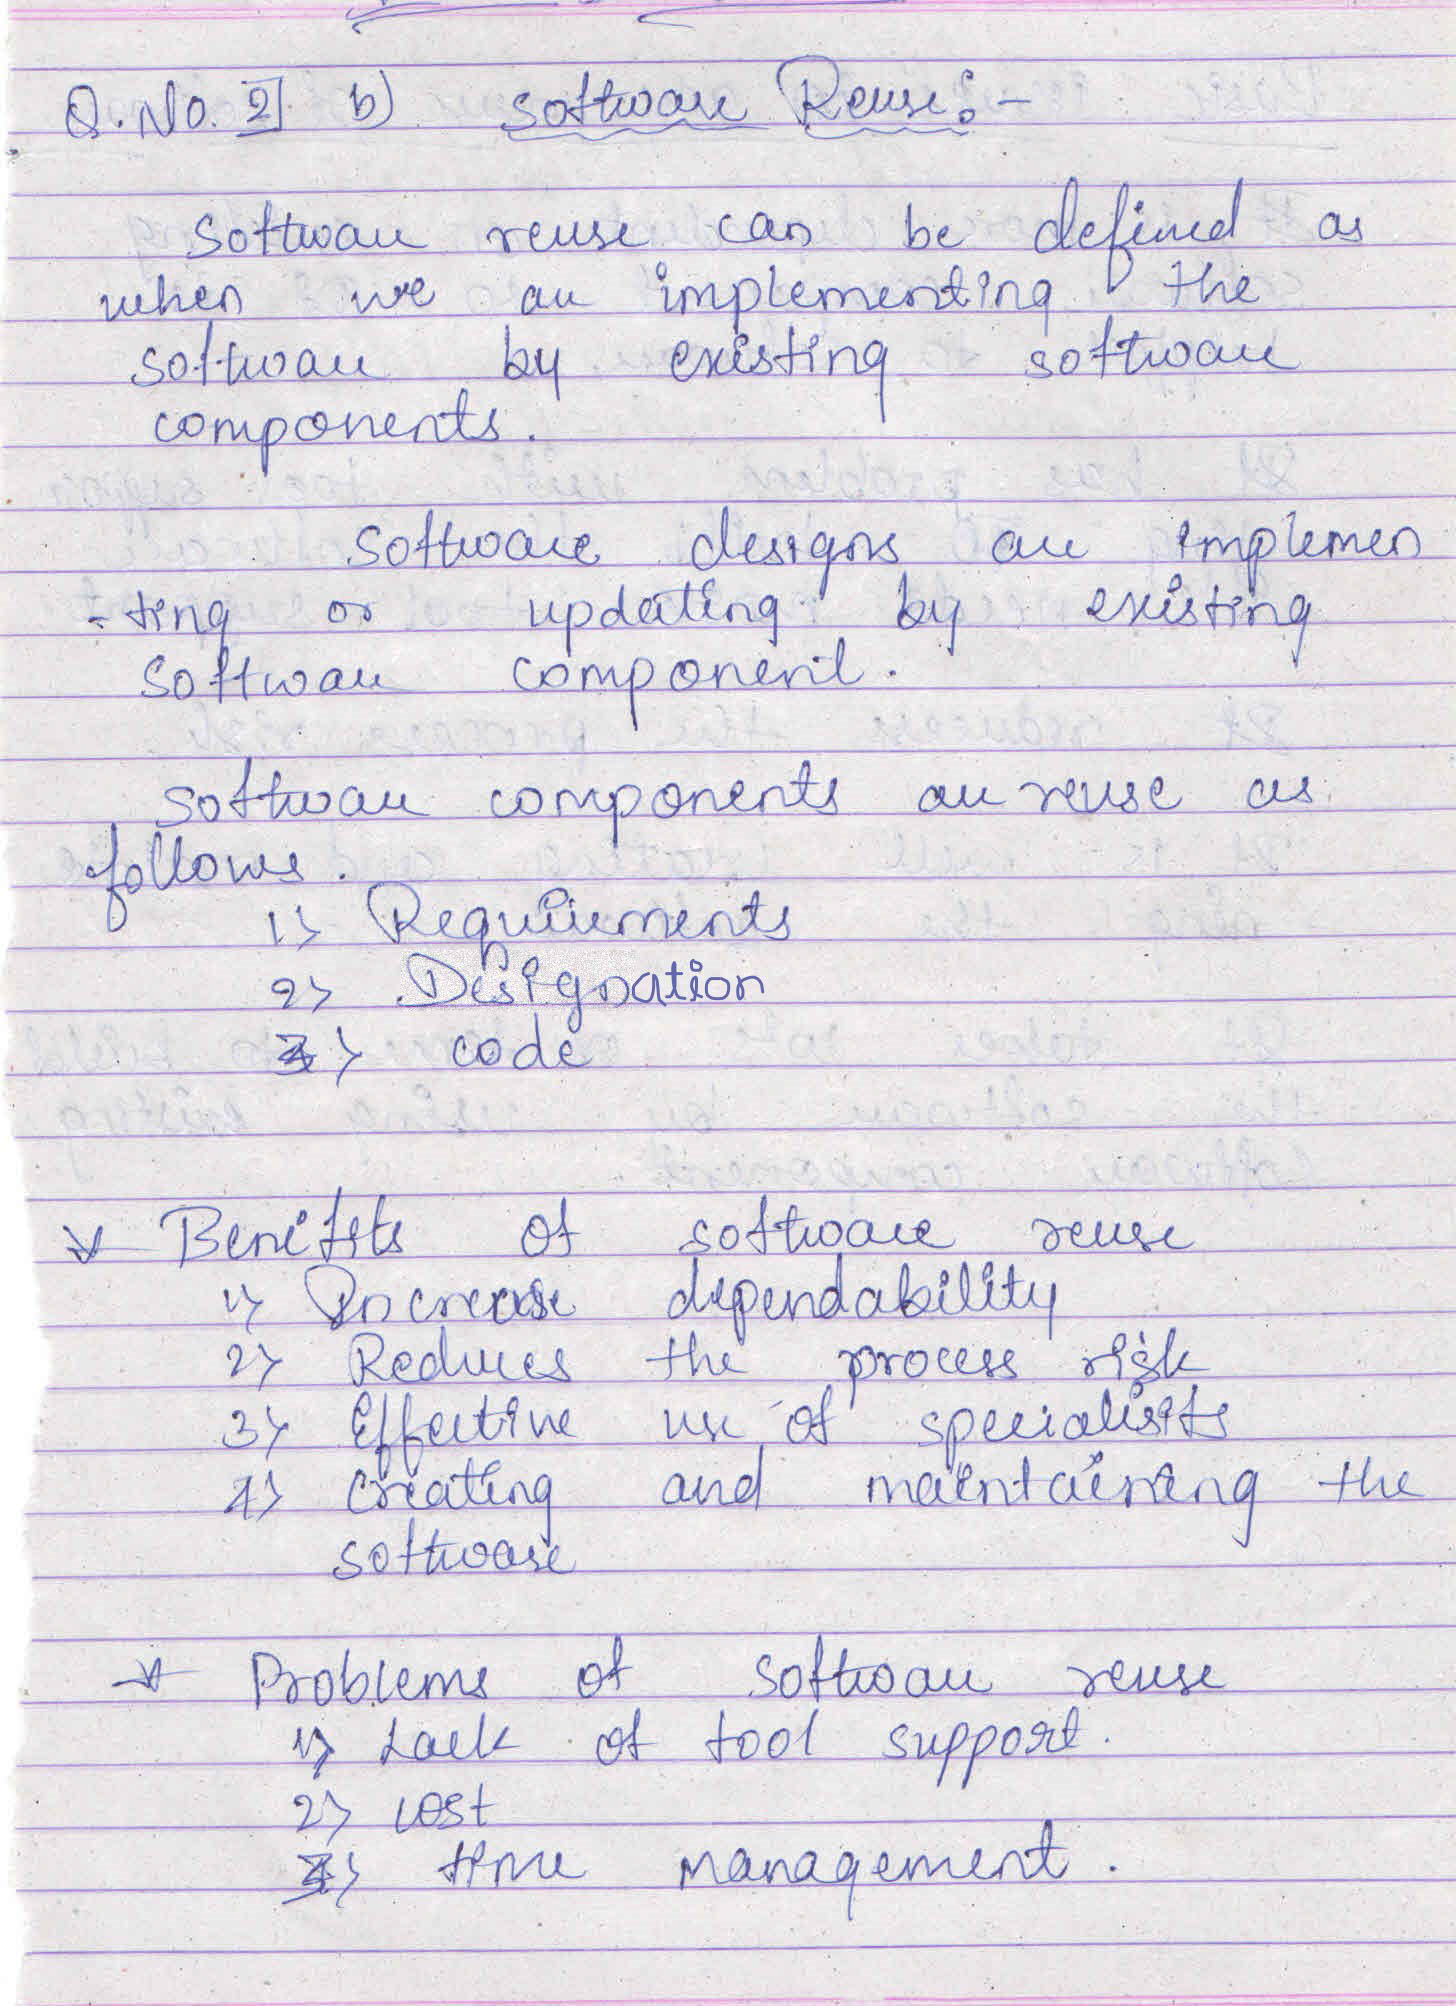 Q. No. 2] b) Software Reuse:-
Software reuse can be defined as
when we are implementing the
software by existing software
components.
Software designs are implemen
-ting or updating by existing
software component.
Software components are reuse as
follows.
1> Requirements
2> Designation
3> code
Benifits of software reuse
1> Increase dependability
2> Reduces the process risk
3> Effective use of specialists
4> Creating and maintaining the
software
Problems of software reuse
1> Lack of tool support.
2> cost
3> time management.